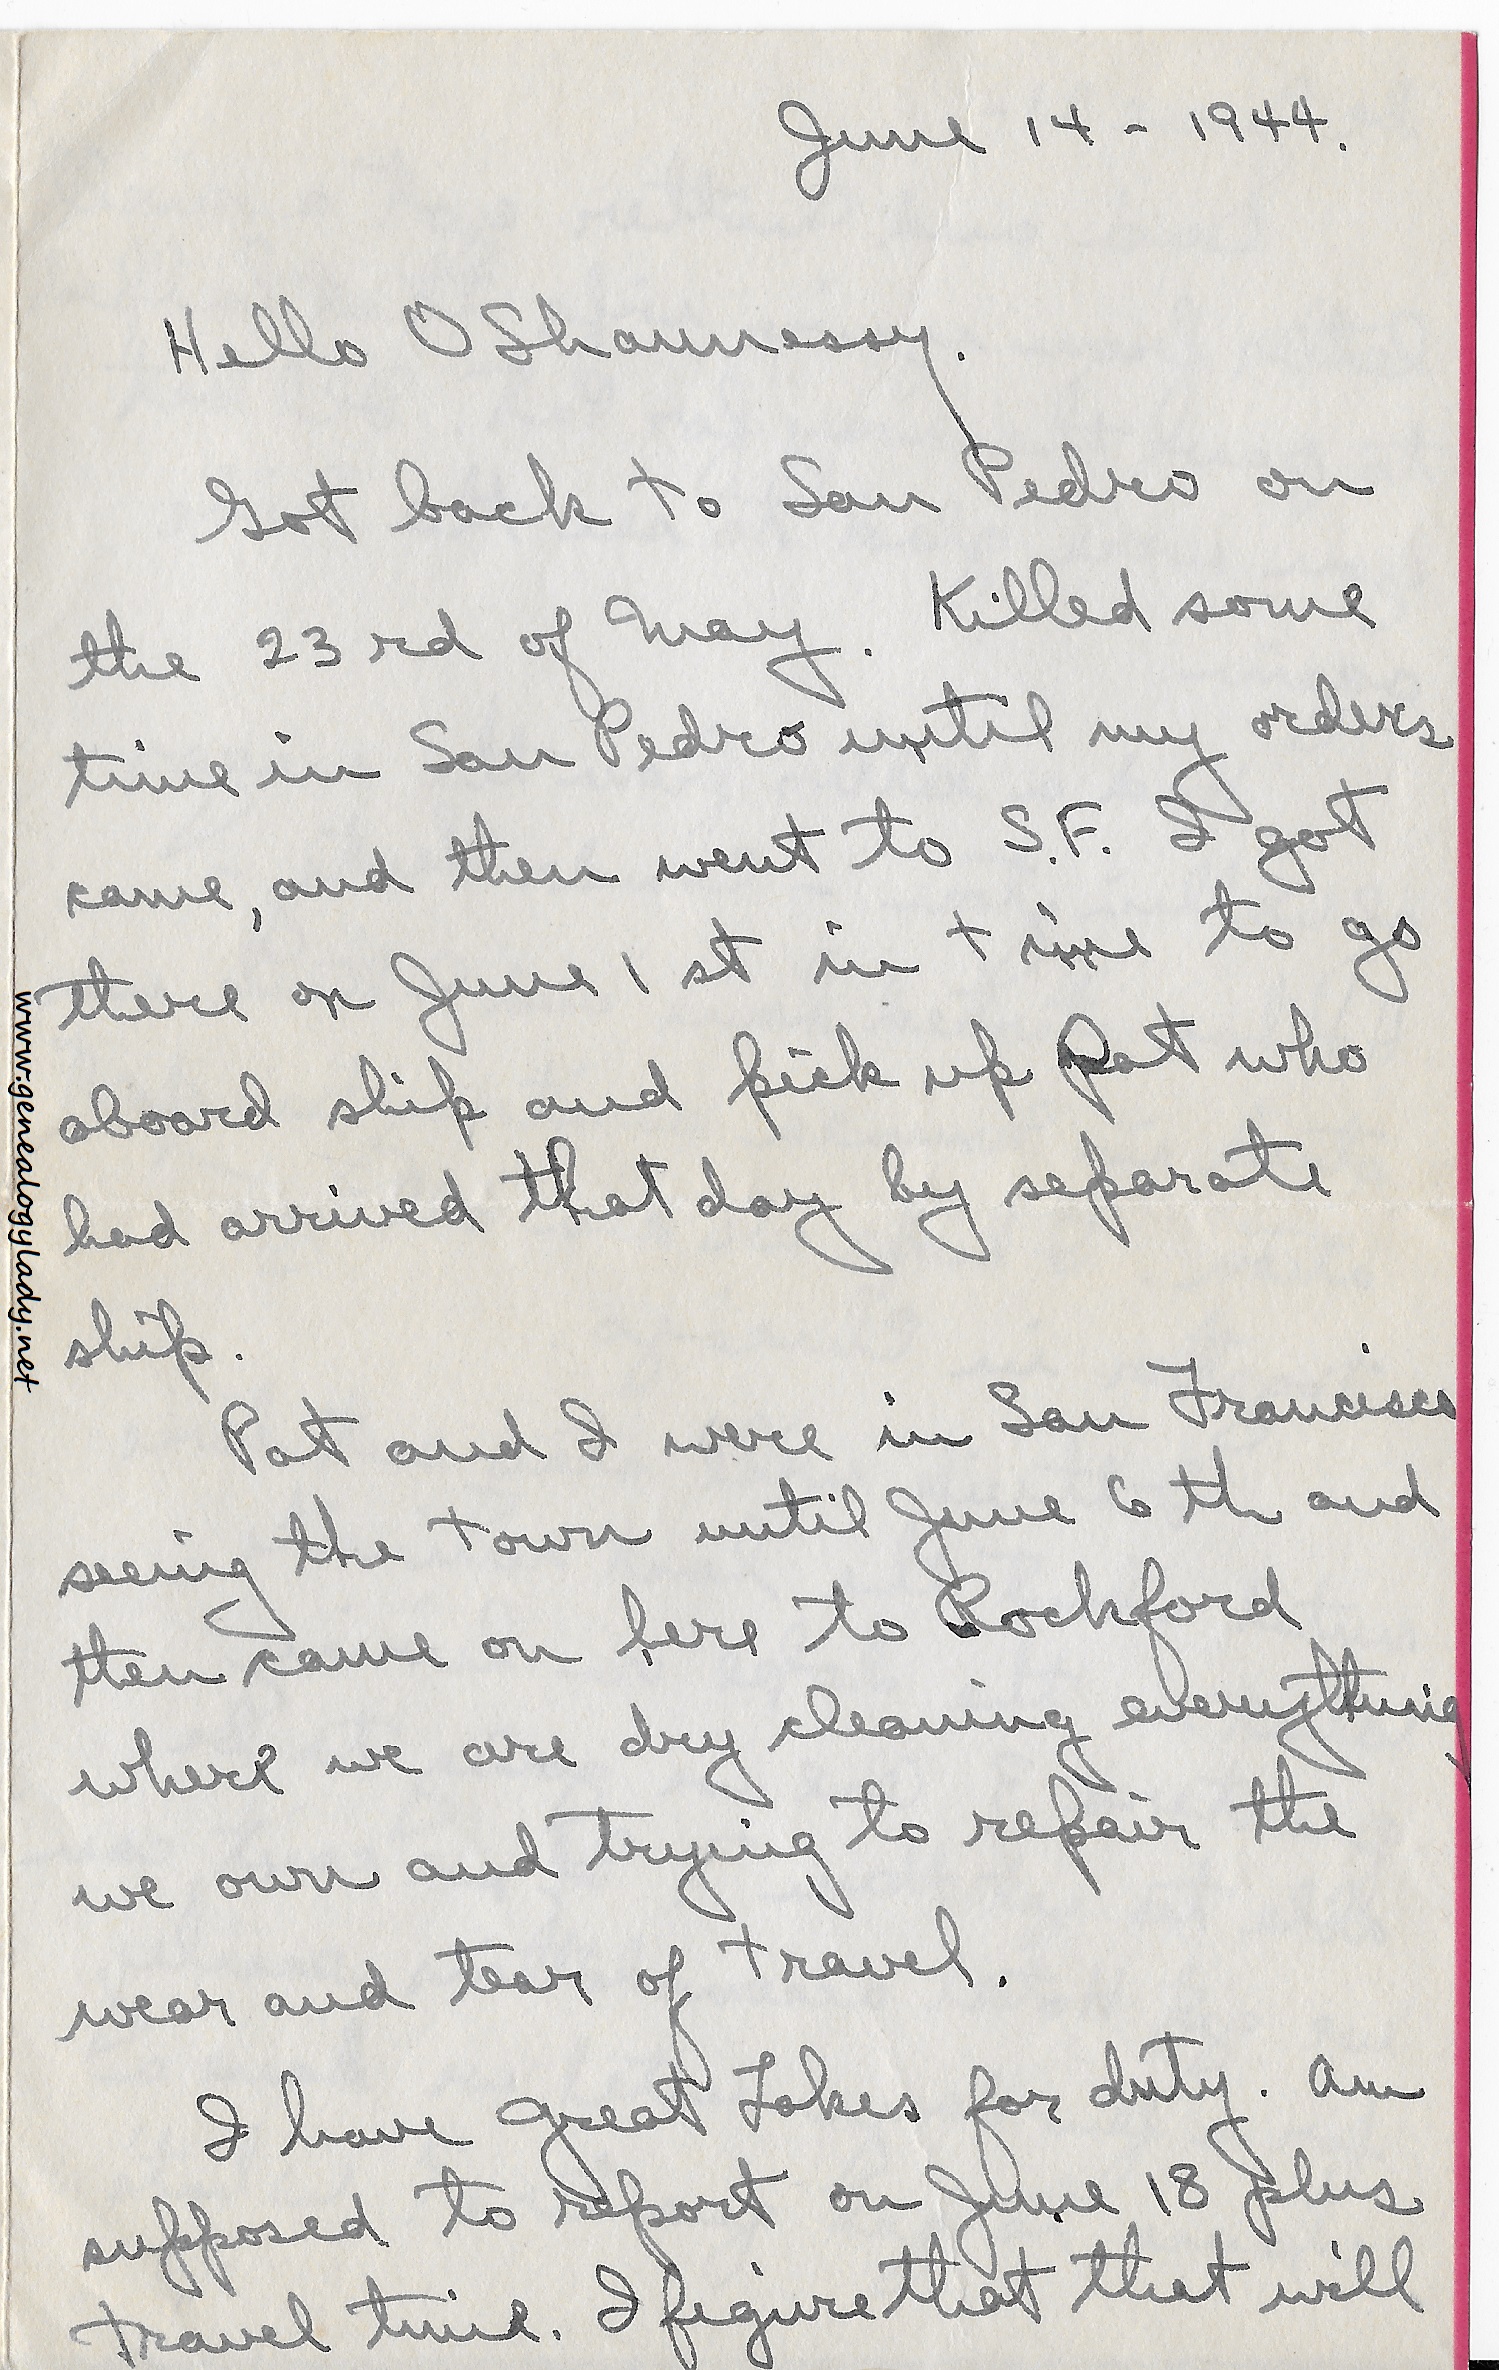 June 14 - 1944.
Hello O Shaunnessy.
Got back to San Pedro on
the 23rd of May. Killed some
time in San Pedro until my orders
came, and then went to S.F. I got
there on June 1st in time to go
aboard ship and pick up Pat who
had arrived that day by separate
ship.
Pat and I were in San Francisco
seeing the town until June 6th and
then came on here to Rockford
where we are dry cleaning everything
we own and trying to repair the
wear and tear of travel.
I have Great Lakes for duty. Am
supposed to report on June 18 plus
travel time. I figure that that will
www.genealogylady.net